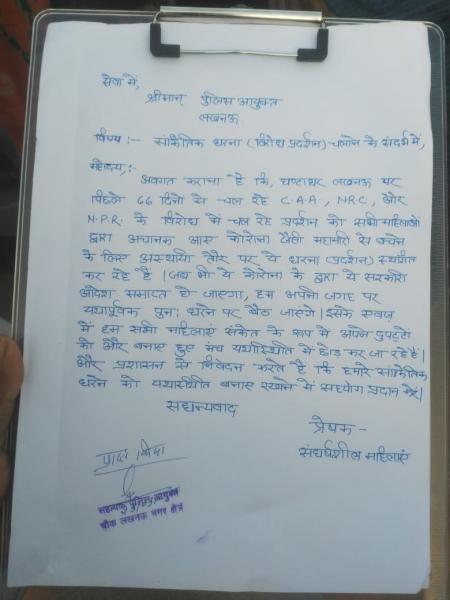 सेवा में,
श्रीमान् पुलिस आयुक्त
लखनऊ
विषय :- सांकेतिक धरना (विरोध प्रदर्शन) चलाने के संदर्भ में,
महोदय, :-
अवगत कराना है कि, घण्टाघर लखनऊ पर
पिछले 66 दिनों से चल रहे C.A.A , N.R.C, और
N.P.R. के विरोध में चल रहे प्रदर्शन को सभी महिलाओं
द्वारा अचानक आस कोरोना जैसी महामारी से बचने
के लिए अस्थायी तौर पर ये धरना (प्रदर्शन) स्थगित
कर रहे हैं। जब भी ये कोरोना के द्वारा ये सरकारी
आदेश समाप्त हो जाएगा, हम अपनी जगह पर
यथापूर्वक पुनः धरने पर बैठ जाएंगे। इसके एवज़
में हम सभी महिलाएं संकेत के रूप में अपने दुपट्टो
को और बनाए हुए मंच यथास्थिति में छोड़ कर जा रहे है।
और प्रशासन से निवेदन करते है कि हमारे सांकेतिक
धरने को यथास्थिति बनाए रखने में सहयोग प्रदान करें।
सधन्यवाद
प्रेषक -
संघर्षशील महिलाएं
प्राप्त किया
सहायक पुलिस आयुक्त
चौक लखनऊ नगर क्षेत्र